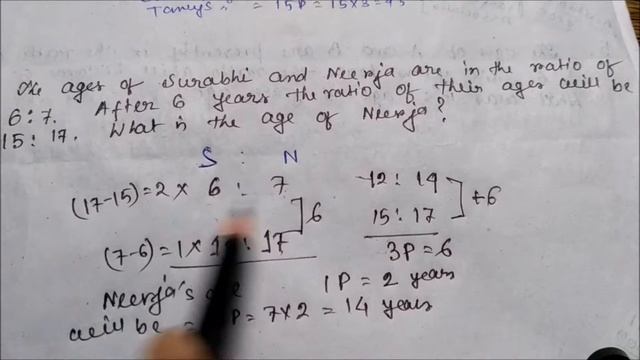 = 15P = 15x3 = 45
The ages of Surabhi and Neerja are in the ratio of
6:7. After 6 years the ratio of their ages will be
15:17. What is the age of Neerja?
S : N
(17-15)=2 x 6 : 7 12:14
]6 ]+6
(7-6)=1x 1 : 17 15:17
3P=6
Neerja's 1P = 2 years
will be = P=7x2 = 14 years